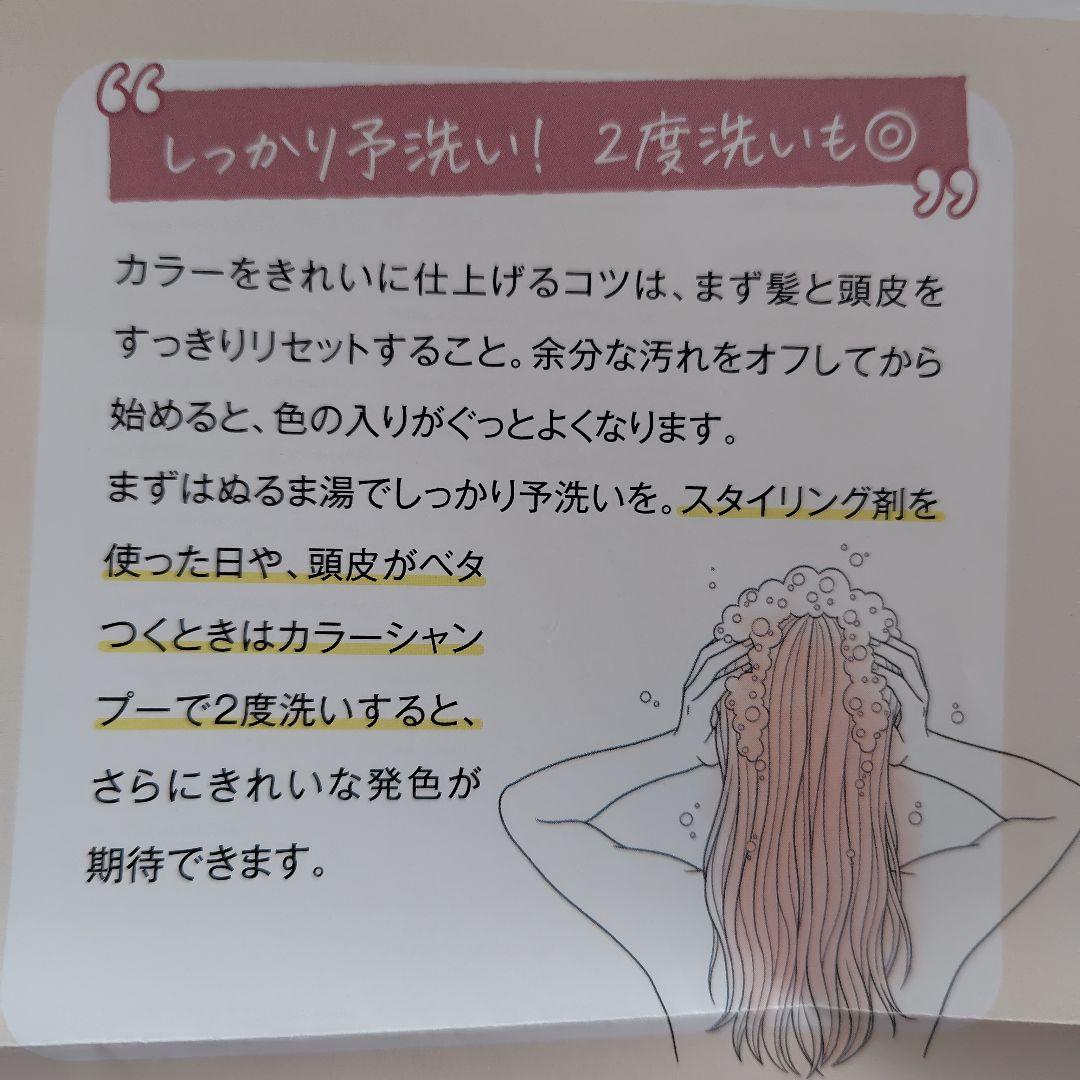 しっかり予洗い! 2度洗いも◎
カラーをきれいに仕上げるコツは、まず髪と頭皮を
すっきりリセットすること。余分な汚れをオフしてから
始めると、色の入りがぐっとよくなります。
まずはぬるま湯でしっかり予洗いを。スタイリング剤を
使った日や、頭皮がベタ
つくときはカラーシャン
プーで2度洗いすると、
さらにきれいな発色が
期待できます。